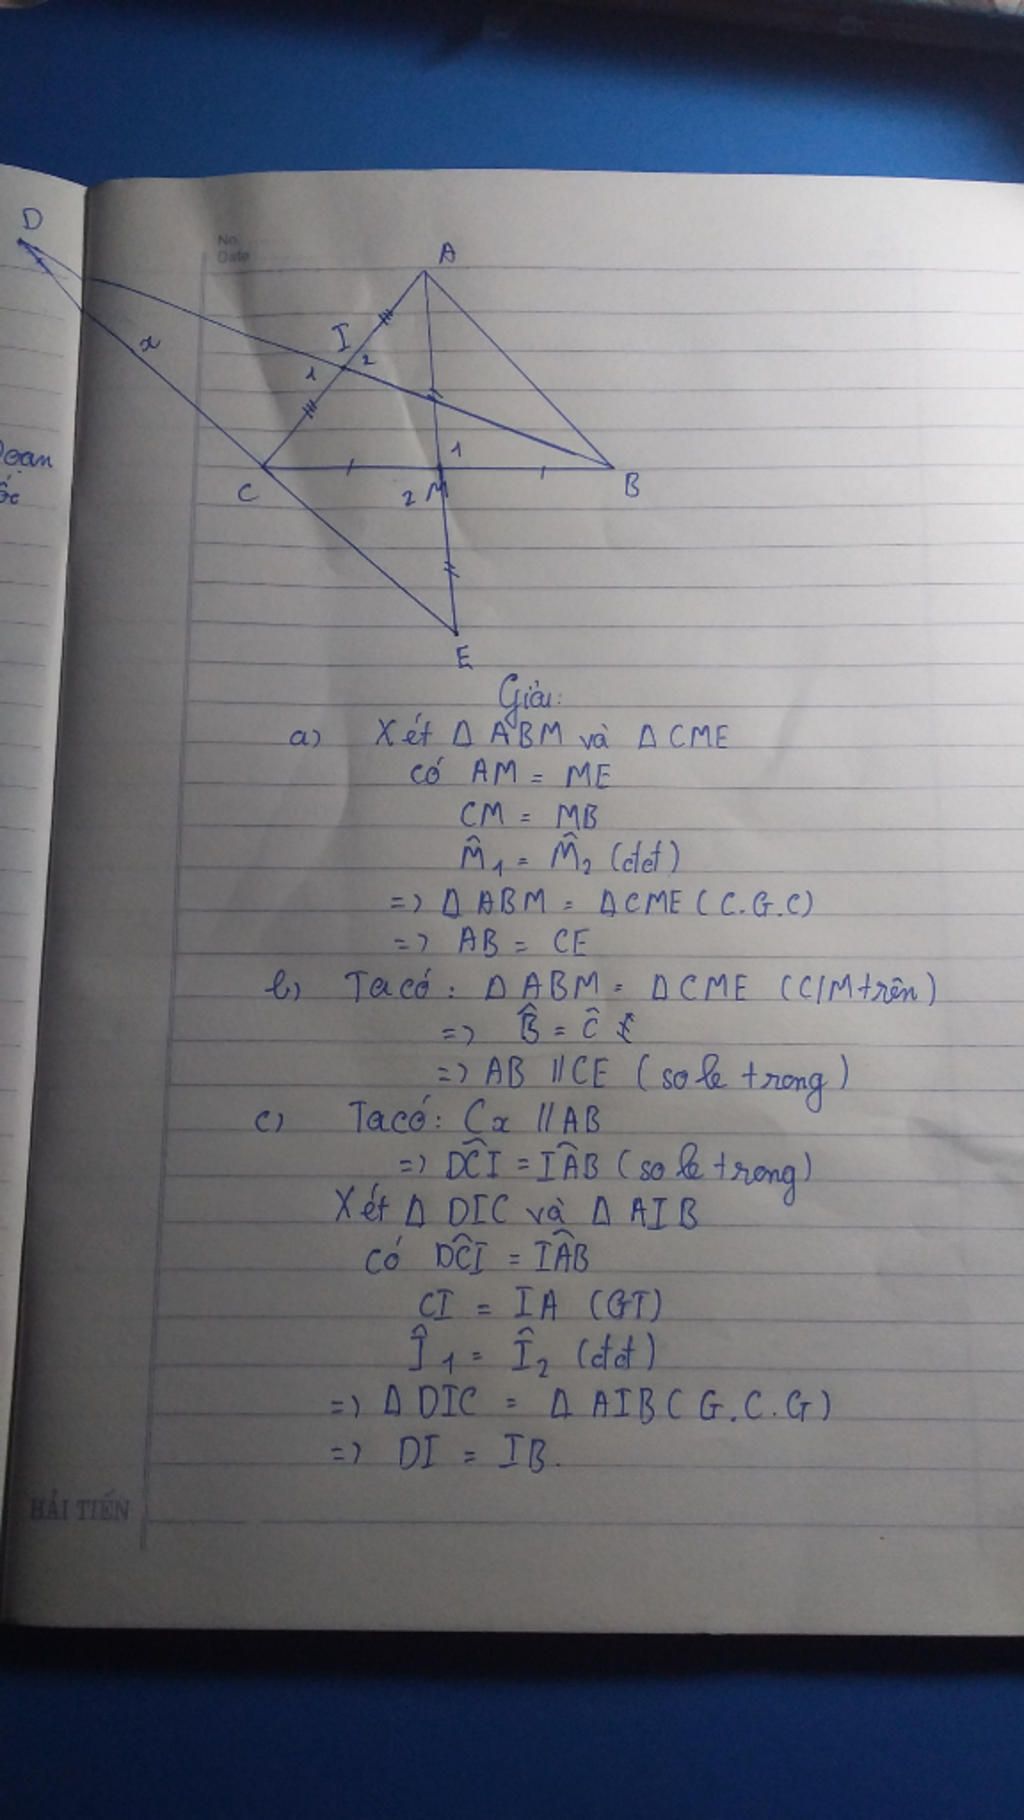 D
No.
Date
A
x
I
1
2
oạn
ốc
C
1
2
M
B
E
Giải:
a) Xét Δ ABM và Δ CME
có AM = ME
CM = MB
M̂₁ = M̂₂ (đđ)
=> Δ ABM = Δ CME (C.G.C)
=> AB = CE
b) Ta có: Δ ABM = Δ CME (C/M trên)
=> B̂ = Ĉ
=> AB // CE (so le trong)
c) Ta có: Cx // AB
=> DĈI = IÂB (so le trong)
Xét Δ DIC và Δ AIB
có DĈI = IÂB
CI = IA (GT)
Î₁ = Î₂ (đđ)
=> Δ DIC = Δ AIB (G.C.G)
=> DI = IB.
HẢI TIẾN